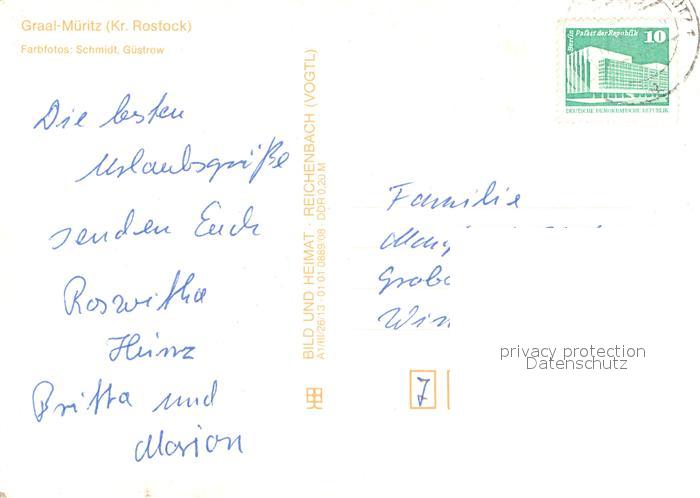 Graal-Müritz (Kr. Rostock)
Farbfotos: Schmidt, Güstrow
Die besten
Urlaubsgrüße
senden Euch
Roswitha
Heinz
Britta und
Marion
BILD UND HEIMAT · REICHENBACH (VOGTL)
A1/III/26/13 01 01 0889/08 DDR 0,20 M
Berlin Palast der Republik 10
DEUTSCHE DEMOKRATISCHE REPUBLIK
Familie
7
privacy protection
Datenschutz